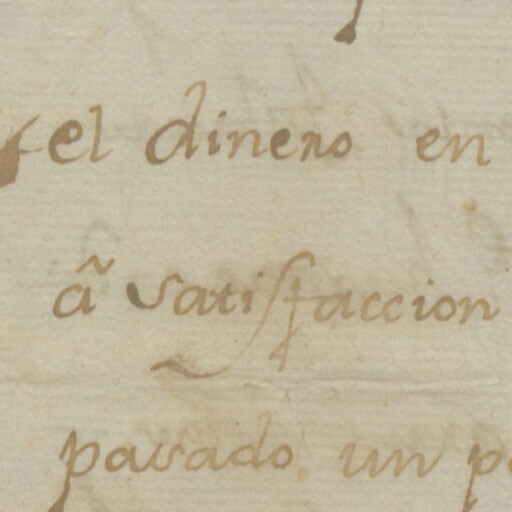 el dinero en
ã satisfaccion
pasado un